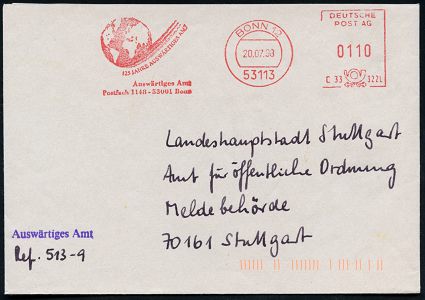 125 JAHRE AUSWÄRTIGES AMT
Auswärtiges Amt
Postfach 1148 - 53001 Bonn
BONN 12
20.07.98
53113
DEUTSCHE
POST AG
0110
C 33 322L
Landeshauptstadt Stuttgart
Amt für öffentliche Ordnung
Meldebehörde
70161 Stuttgart
Auswärtiges Amt
Ref. 513-9